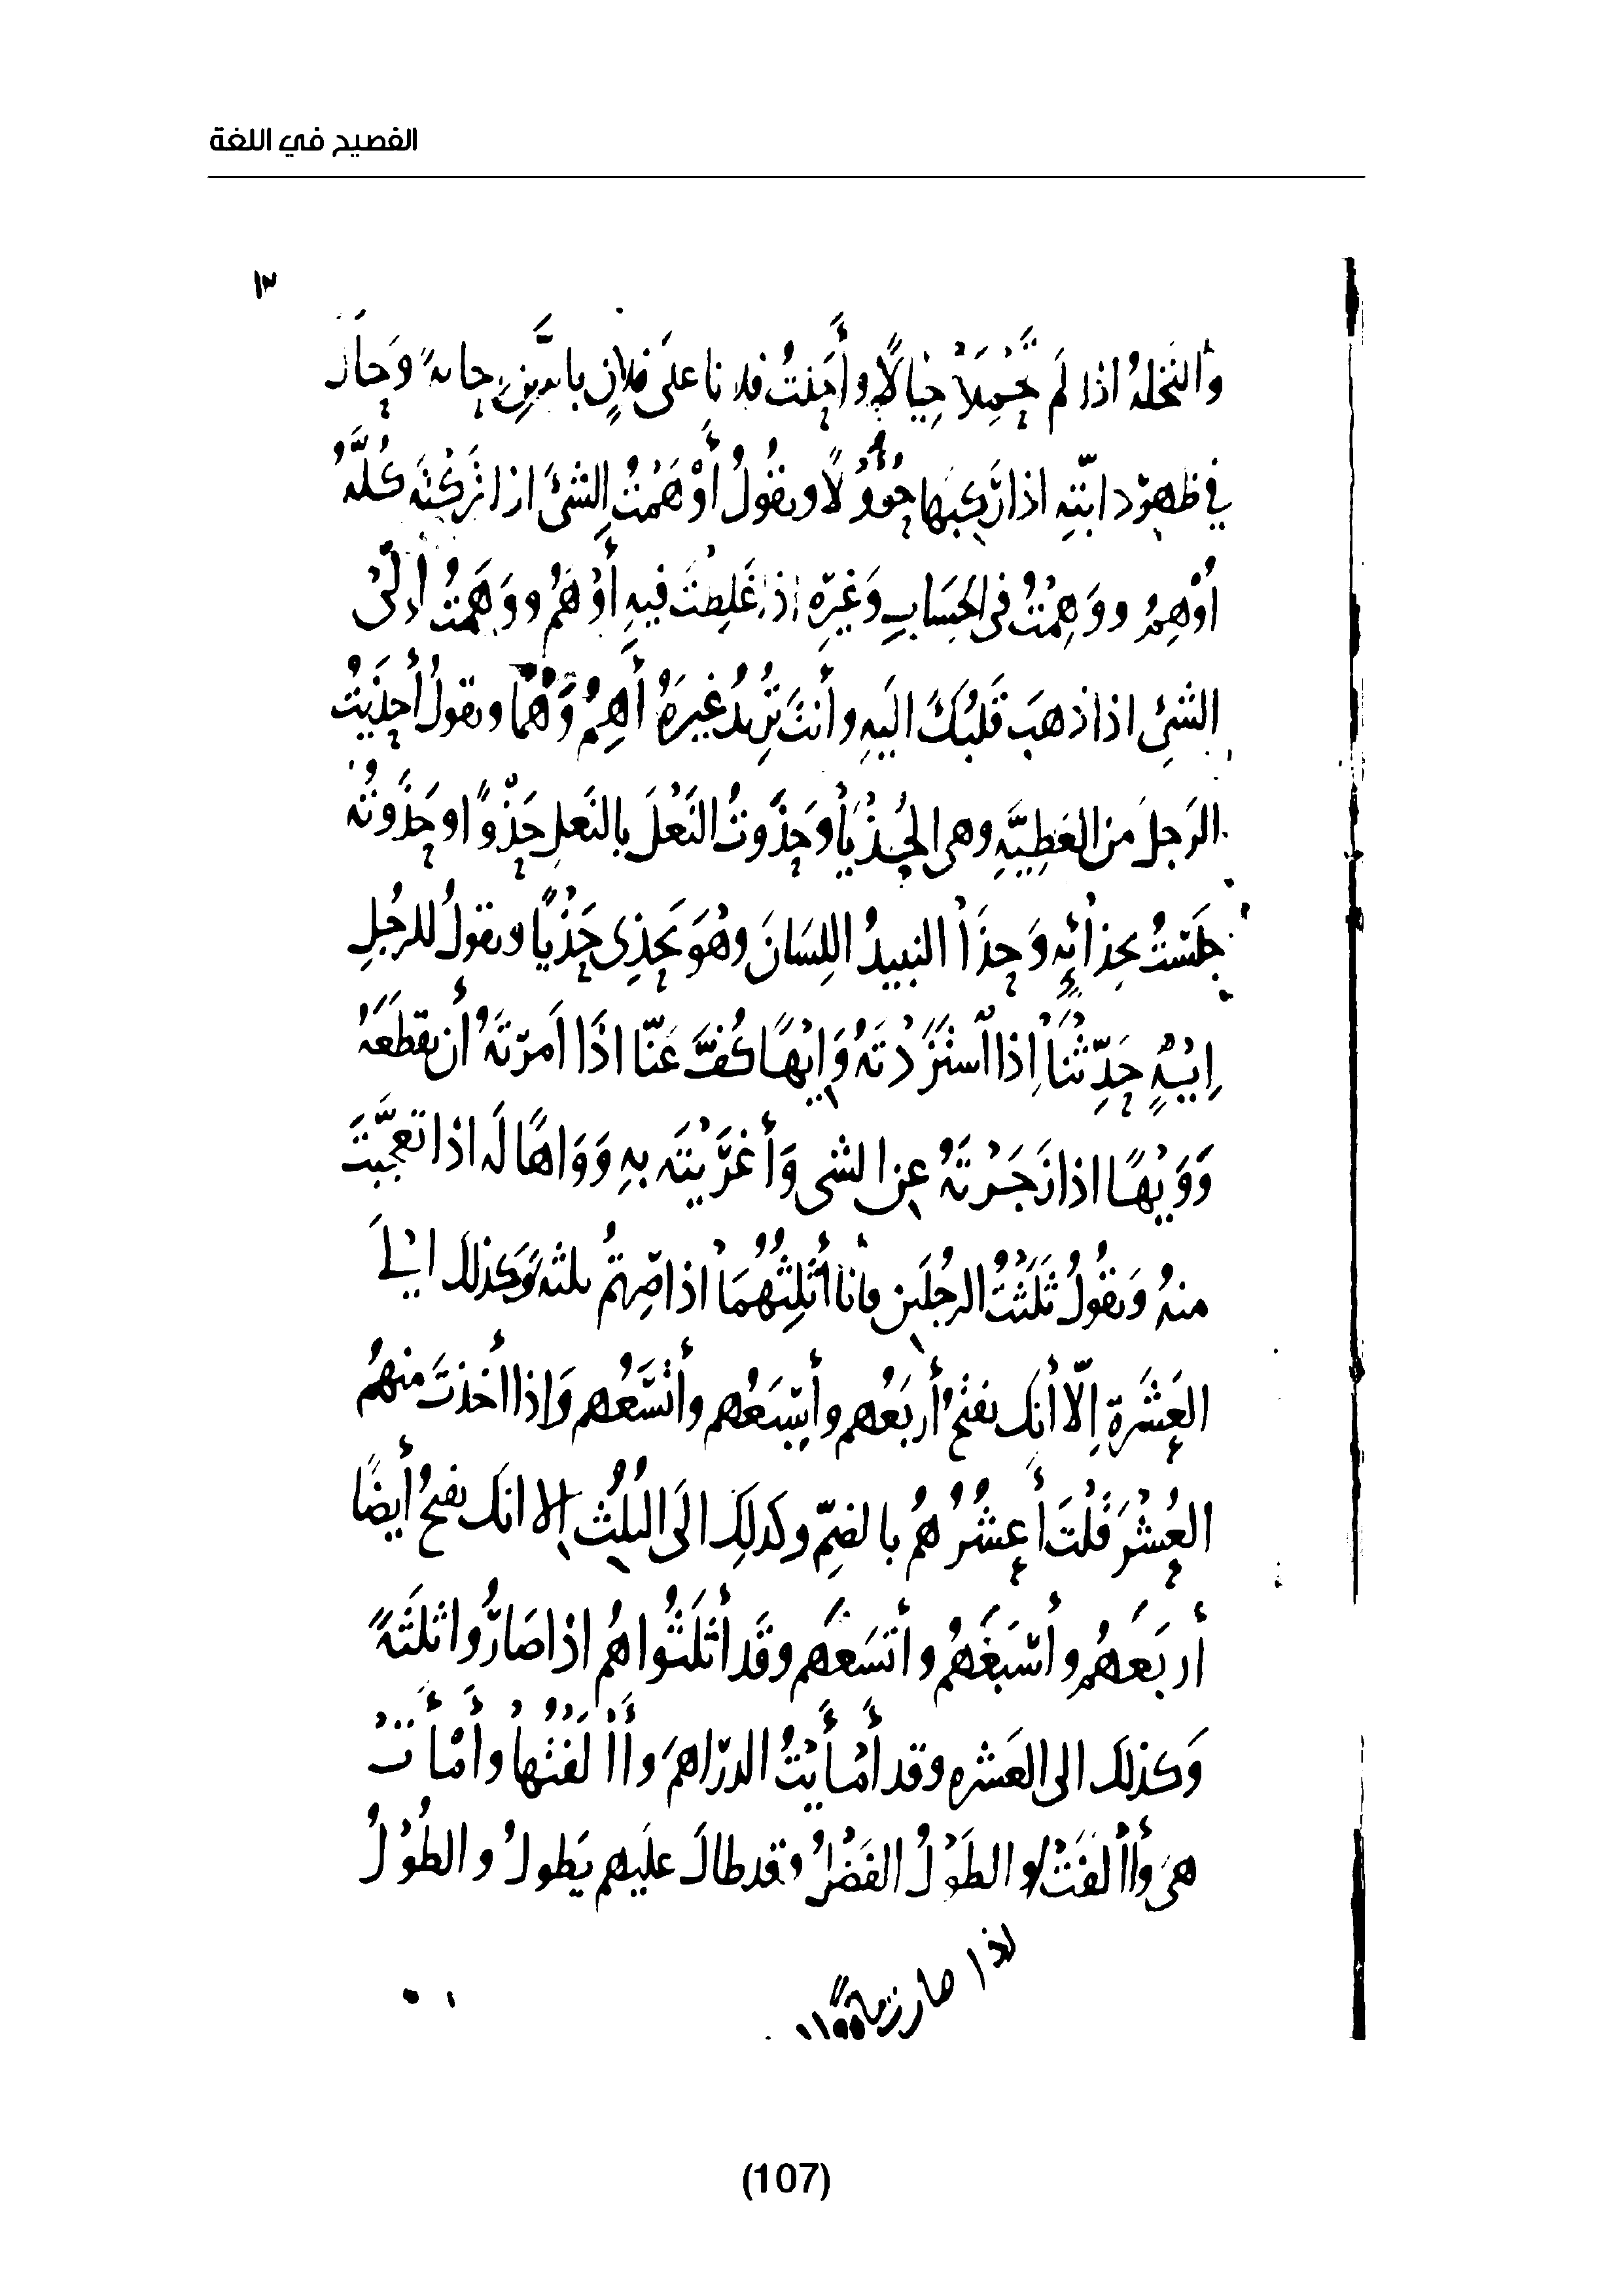 الفصيح في اللغة
١٣
وَالنَخلةُ اذا لَم تَحْمِلْ حِيَالًا وأَحَلْتُ فلانا على فلانٍ بالدَّينِ إحالةً وَحالَ
في ظهرِ دابّتِه اذا رَكبَها حُؤُولًا وتقُولُ أَوْهَمْتُ الشئَ اذا تَركْتَه كُلَّهُ
أُوْهِمُ ووَهِمْتُ في الحِسَابِ وَغيرِه إذا غَلِطْتَ فيهِ أَوْهَمُ ووَهَمْتُ إلىَ
الشئِ اذا ذهبَ قَلبُكَ اليَهِ وأنتَ تُريدُ غيرَهُ أَهِمُ وَهْمًا وتقولُ أَحذَيتُ
الرَجلَ مَن العَطِيَّهِ وهى الحُذْيَا وَحَذَوتُ النَعْلَ بالنَعلِ حَذْوًا وحَذَوتُه
جلَستُ بحِذائِه وَحذَا النبيذُ اللِسَانَ وهُوَ يَحذِى حَذْيًا وتقولُ للرجُلِ
إيْهٍ حَدِّثْنا إذا اسْتَزَدْتَهُ وَإيْهًا كُفَّ عَنّا اذَا اَمرْتَهُ أن يقطَعَهُ
وَوَيْهًا اذا زَجَرْتَهُ عن الشى وَأغرَيْتَه بهِ وَوَاهًا لَه اذا تعجَّبتَ
منهُ وَتقُولُ ثَلَثْتُ الرجُلَين فأنا أَثْلِثُهُمَا اذا صِرتمُ ثلثهً وَكذلك اليَ
العَشَرةِ اِلّا أنك تفتحُ أربَعُهم وأسْبَعُهم وأتْسَعُهم وَاذا أخذتَ منهمُ
العُشْرَ قُلْتَ أَعشُرُهُمُ بالضمِّ وكذلِكَ الَى الثُلُثِ إلا انك تفتحُ أيضًا
أربَعهُم وأسْبَعَهُم وأتسَعَهم وقَد أَثْلَثُوا هُم اذا صَارُوا ثلثَةً
وَكذلك الى العَشره وقد أَمْأَيْتُ الدرَاهمَ وأَاْلَفْتُها وأَمْأَتْ
هىَ وأَاْلَفَتْ والطَوْلُ الفَضْلُ وقد طالَ عليهم يَطولُ والطُوْلُ
(107)